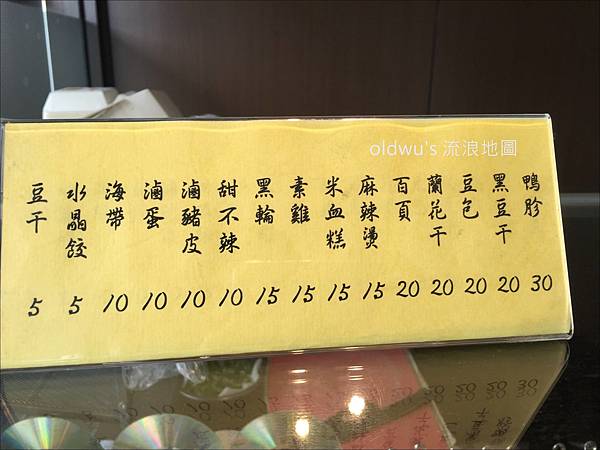 oldwu's 流浪地圖
鴨胗 30
黑豆干 20
豆包 20
蘭花干 20
百頁 20
麻辣燙 15
米血糕 15
素雞 15
黑輪 15
甜不辣 10
滷豬皮 10
滷蛋 10
海帶 10
水晶餃 5
豆干 5